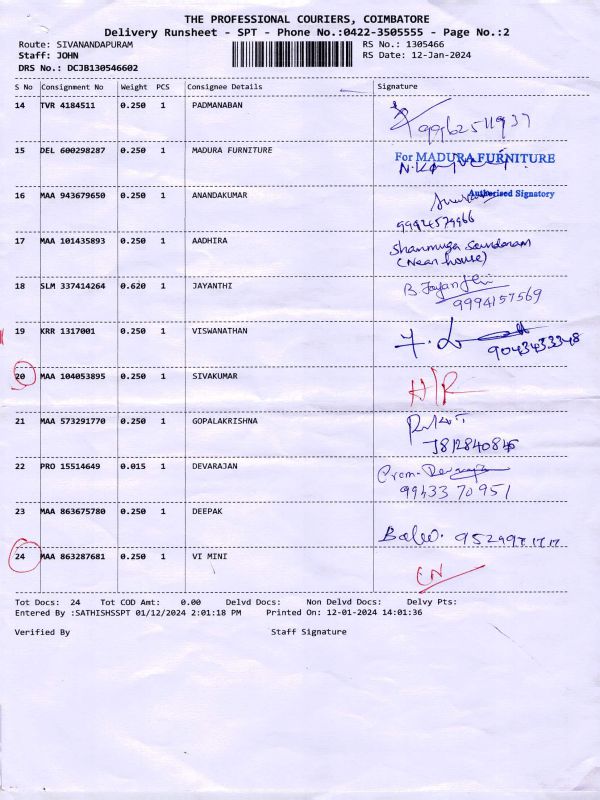 THE PROFESSIONAL COURIERS, COIMBATORE
Delivery Runsheet - SPT - Phone No.:0422-3505555 - Page No.:2
Route: SIVANANDAPURAM RS No.: 1305466
Staff: JOHN RS Date: 12-Jan-2024
DRS No.: DCJB130546602
S No Consignment No Weight PCS Consignee Details Signature
14 TVR 4184511 0.250 1 PADMANABAN
9962511937
15 DEL 600298287 0.250 1 MADURA FURNITURE
For MADURA FURNITURE
16 MAA 943679650 0.250 1 ANANDAKUMAR
Authorised Signatory
17 MAA 101435893 0.250 1 AADHIRA
Shanmuga Soundaram
(Near house)
18 SLM 337414264 0.620 1 JAYANTHI
B. Jayanthi
9994157569
19 KRR 1317001 0.250 1 VISWANATHAN
9043433348
20 MAA 104053895 0.250 1 SIVAKUMAR
H/R
21 MAA 573291770 0.250 1 GOPALAKRISHNA
22 PRO 15514649 0.015 1 DEVARAJAN
9943370951
23 MAA 863675780 0.250 1 DEEPAK
24 MAA 863287681 0.250 1 VI MINI
Tot Docs: 24 Tot COD Amt: 0.00 Delvd Docs: Non Delvd Docs: Delvy Pts:
Entered By :SATHISHSSPT 01/12/2024 2:01:18 PM Printed On: 12-01-2024 14:01:36
Verified By Staff Signature